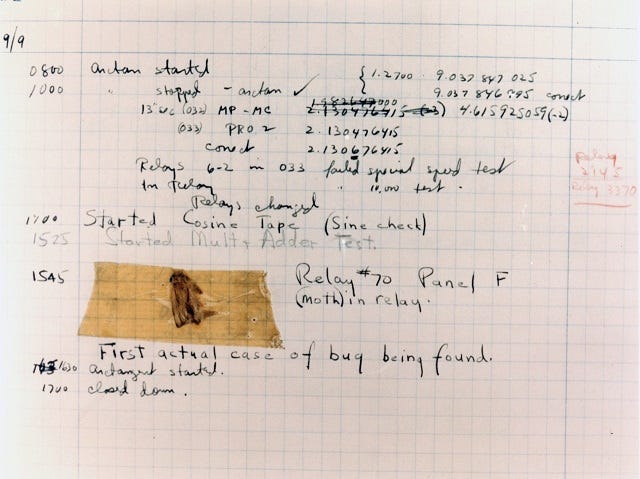 9/9
0800 Antan started { 1.2700 9.037 847 025
1000 " stopped - antan ✓ 9.037 846 995 conect
13" sec (032) MP - MC 2.130476415 (-3) 4.615925059(-2)
(033) PRO 2 2.130476415
conect 2.130676415
Relays 6-2 in 033 failed special speed test
In Relay " 10,000 test .
Relays changed
Relay
2145
Relay 3370
1700 Started Cosine Tape (Sine check)
1525 Started Mult + Adder Test.
1545 Relay #70 Panel F
(moth) in relay.
First actual case of bug being found.
1630 Antangent started.
1700 closed down .